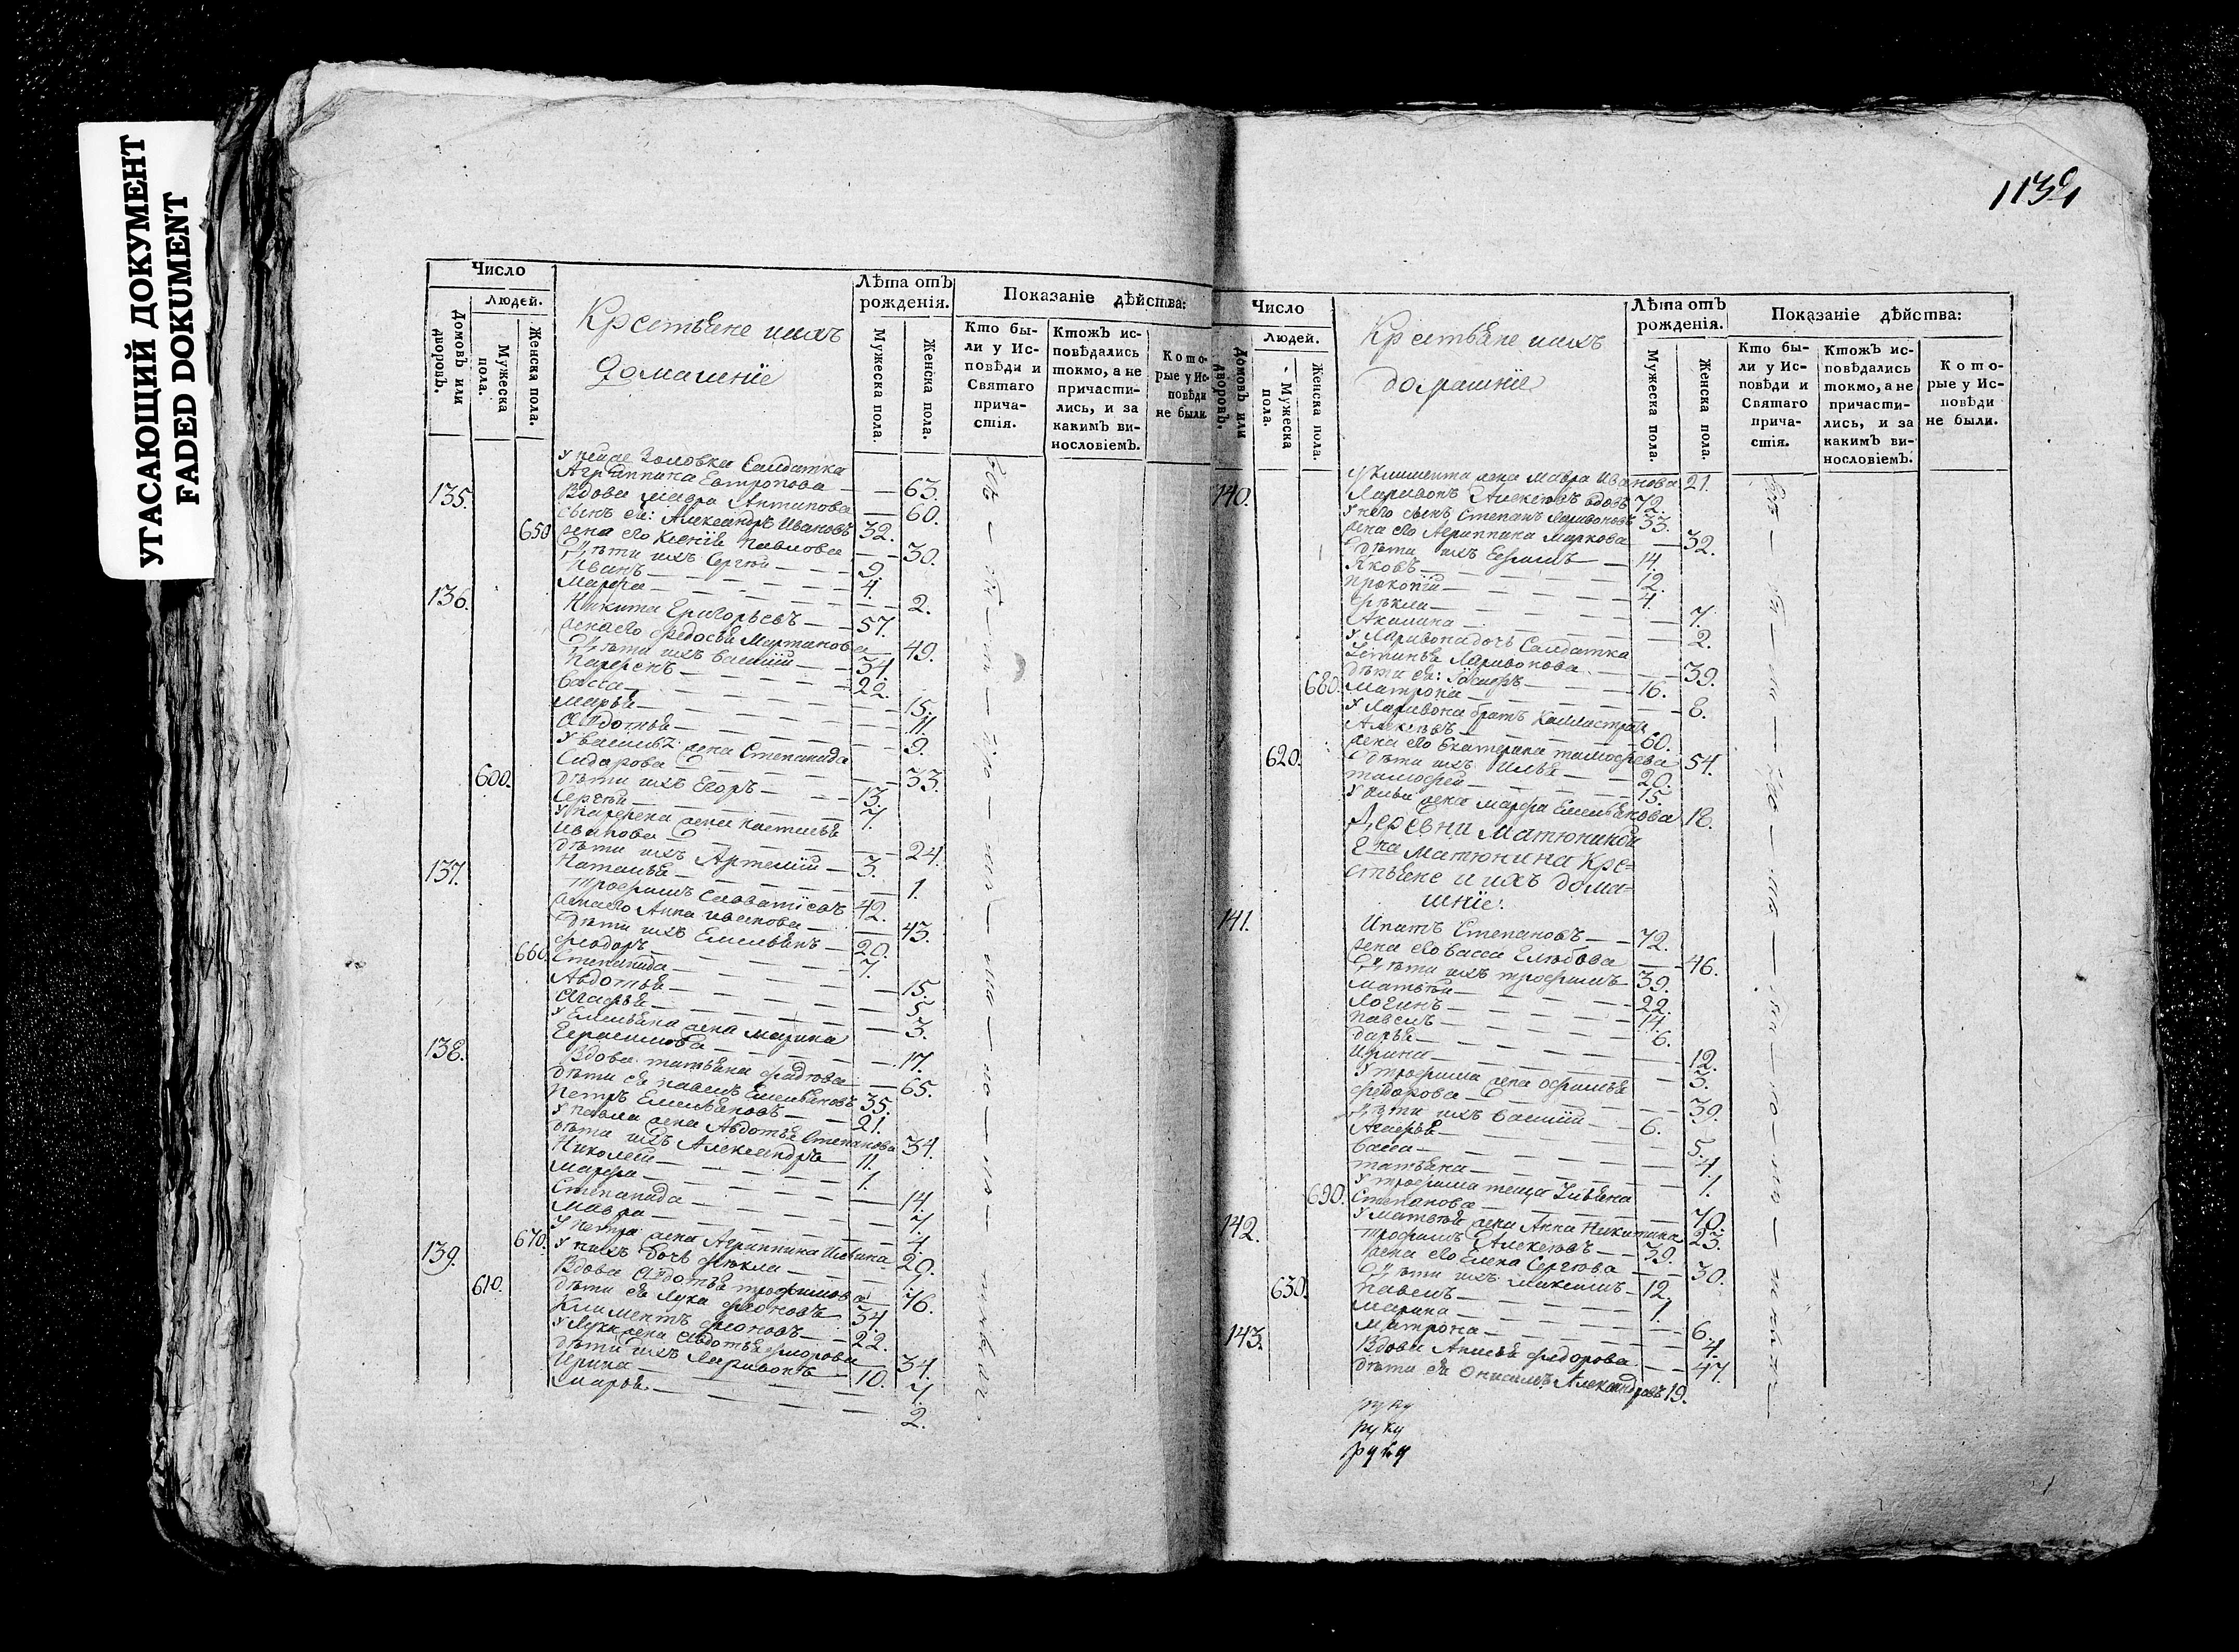 УГАСАЮЩИЙ ДОКУМЕНТ
FADED DOKUMENT
Число
Людей.
Домовъ или дворовъ.
Мужеска пола.
Женска пола.
Крестьяне ихъ
Домашнїе
Лѣта отъ рожденїя.
Мужеска пола.
Женска пола.
Показанїе дѣйства:
Кто были у Исповѣди и Святаго причастїя.
Ктожъ исповѣдались токмо, а не причастились, и за какимъ винословїемъ.
Которые у Исповѣди не были.
Золовка Салдатка
Агрипина Евтропова — — 63.
135. Вдова Мавра Антипова — 60.
сынъ ея: Александръ Ивановъ 32.
650 жена его Ксенїя Павлова — — 30.
Дѣти ихъ Сергѣй — — 9.
Иванъ — — — 4.
Марфа — — — 2.
136. Никита Григорьевъ — — 57.
жена его Федосья Мартинова — 49.
Дѣти ихъ Василїй — — 34.
Парфенъ — — — 22.
Васса — — — 15.
Марья — — — 11.
Авдотья — — — 9.
У Василья жена Степанида
Сидорова — — — 33.
600. дѣти ихъ Егоръ — — 13.
Сергѣй — — — 7.
У Парфена жена Наталья
Иванова — — — 24.
дѣти ихъ Артемїй — 3.
Наталья — — — 1.
137. Трофимъ Савватїевъ 42.
жена его Анна Иванова — — 43.
Дѣти ихъ Емельянъ — 20.
Федоръ — — — 7.
660. Степанида — — — 15.
Авдотья — — — 5.
Агафья — — — 3.
У Емельяна жена Марина
Герасимова — — — 17.
138. Вдова татьяна — 65.
дѣти ея Павелъ Емельяновъ 35.
Петръ Емельяновъ — 21.
У Павла жена Авдотья Степанова 34.
дѣти ихъ Александръ — 11.
Николай — — — 1.
Марфа — — — 14.
Степанида — — — 7.
Мавра — — — 4.
У Петра жена Агрипина Ильина 20.
670. У нихъ дочь Фекла — —
139. Вдова Авдотья трофимова — 76.
610. дѣти ея Лука — 34.
Климентъ — 22.
У Луки жена Авдотья — 34.
дѣти ихъ Ларивонъ — 10.
Ирина — — — 7.
Марья — — — 2.
113
Число
Людей.
Домовъ или дворовъ.
Мужеска пола.
Женска пола.
Крестьяне ихъ
домашнїе
Лѣта отъ рожденїя.
Мужеска пола.
Женска пола.
Показанїе дѣйства:
Кто были у Исповѣди и Святаго причастїя.
Ктожъ исповѣдались токмо, а не причастились, и за какимъ винословїемъ.
Которые у Исповѣди не были.
У Климента жена Мавра Иванова 21.
140. Ларивонъ Алексѣевъ вдовъ 72.
У него сынъ Степанъ Ларивоновъ 33.
жена его Агрипина Маркова — 32.
Дѣти ихъ — 14.
Яковъ — — — 12.
Прокопїй — — — 4.
Фекла — — — 7.
Акилина — — — 2.
У Ларивона дочь Салдатка
Устинья Ларивонова — — 39.
дѣти ея: Іосифъ — — 16.
680. Матрона — — — 8.
У Ларивона братъ Каллистратъ
Алексѣевъ — — — 60.
жена его Екатерина тимофеева 54.
620. Дѣти ихъ Илья — 20.
тимофей — — — 15.
У Ильи жена Марфа Емельянова 18.
Деревни Матюниной
Г на Матюнина Кре=
стьяне и ихъ дома=
шнїе:
141. Ипатъ Степановъ — — 72.
жена его Васса Глебова — 46.
Дѣти ихъ трофимъ — 39.
Матвѣй — — — 22.
Логинъ — — — 14.
Павелъ — — — 6.
Дарья — — — 12.
Ирина — — — 3.
У трофима жена Офимья
Федорова — — — 39.
Дѣти ихъ Василїй — 6.
Агафья — — — 5.
Васса — — — 4.
татьяна — — — 1.
У трофима теща Ульяна
690. Степанова — — — 70.
У Матвѣя жена Анна Никитина 23.
142. трофимъ Алексѣевъ — — 39.
жена его Елена Сергѣева — — 30.
Дѣти ихъ Максимъ — 12.
630. Павелъ — — — 1.
Марина — — — 6.
Матрона — — — 4.
143. Вдова Анисья Федорова — — 47.
дѣти ея Онисимъ Александровъ 19.
руку
руку
руку